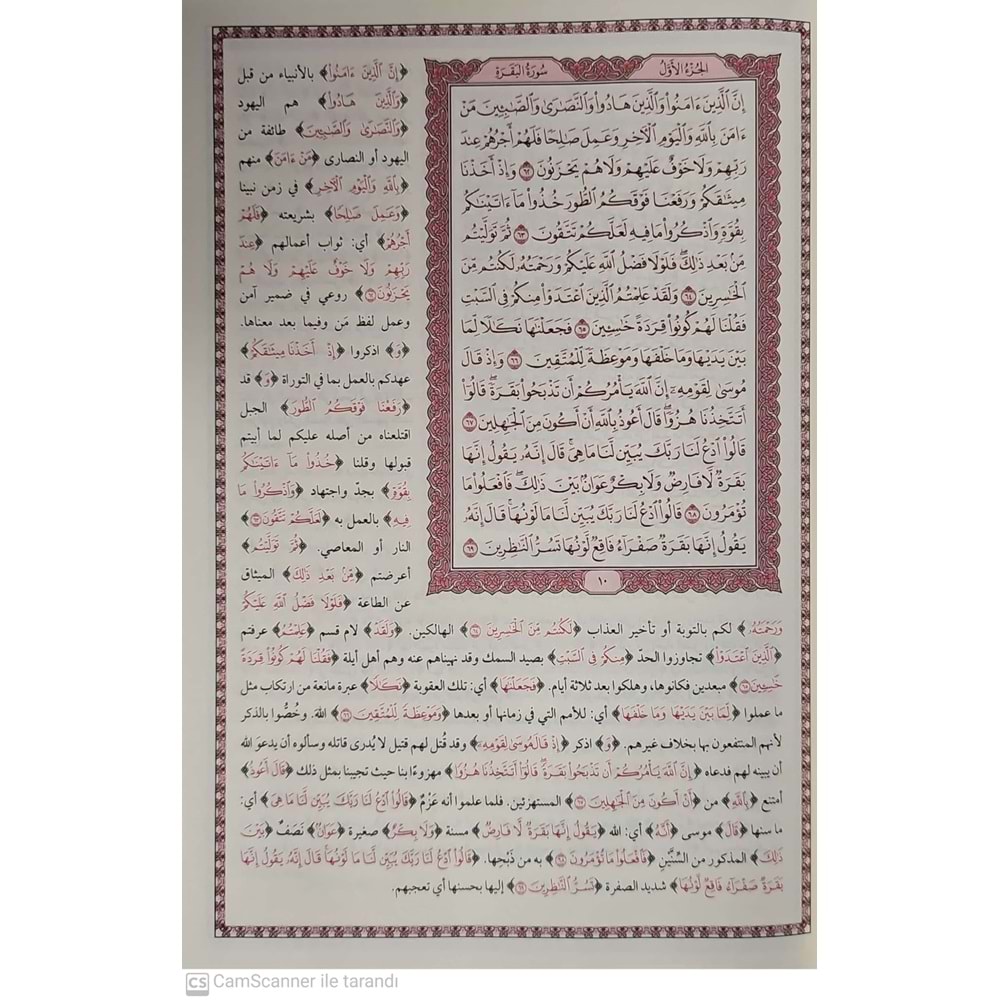 الجُزْءُ الأَوَّلُ
سُورَةُ البَقَرَةِ
إِنَّ ٱلَّذِينَ ءَامَنُوا۟ وَٱلَّذِينَ هَادُوا۟ وَٱلنَّصَٰرَىٰ وَٱلصَّٰبِـِٔينَ مَنْ
ءَامَنَ بِٱللَّهِ وَٱلْيَوْمِ ٱلْءَاخِرِ وَعَمِلَ صَٰلِحًا فَلَهُمْ أَجْرُهُمْ عِندَ
رَبِّهِمْ وَلَا خَوْفٌ عَلَيْهِمْ وَلَا هُمْ يَحْزَنُونَ ٦٢ وَإِذْ أَخَذْنَا
مِيثَٰقَكُمْ وَرَفَعْنَا فَوْقَكُمُ ٱلطُّورَ خُذُوا۟ مَآ ءَاتَيْنَٰكُم
بِقُوَّةٍ وَٱذْكُرُوا۟ مَا فِيهِ لَعَلَّكُمْ تَتَّقُونَ ٦٣ ثُمَّ تَوَلَّيْتُم
مِّنۢ بَعْدِ ذَٰلِكَ ۖ فَلَوْلَا فَضْلُ ٱللَّهِ عَلَيْكُمْ وَرَحْمَتُهُۥ لَكُنتُم مِّنَ
ٱلْخَٰسِرِينَ ٦٤ وَلَقَدْ عَلِمْتُمُ ٱلَّذِينَ ٱعْتَدَوْا۟ مِنكُمْ فِى ٱلسَّبْتِ
فَقُلْنَا لَهُمْ كُونُوا۟ قِرَدَةً خَٰسِـِٔينَ ٦٥ فَجَعَلْنَٰهَا نَكَٰلًا لِّمَا
بَيْنَ يَدَيْهَا وَمَا خَلْفَهَا وَمَوْعِظَةً لِّلْمُتَّقِينَ ٦٦ وَإِذْ قَالَ
مُوسَىٰ لِقَوْمِهِۦٓ إِنَّ ٱللَّهَ يَأْمُرُكُمْ أَن تَذْبَحُوا۟ بَقَرَةً ۖ قَالُوٓا۟
أَتَتَّخِذُنَا هُزُوًا ۖ قَالَ أَعُوذُ بِٱللَّهِ أَنْ أَكُونَ مِنَ ٱلْجَٰهِلِينَ ٦٧
قَالُوا۟ ٱدْعُ لَنَا رَبَّكَ يُبَيِّن لَّنَا مَا هِىَ ۚ قَالَ إِنَّهُۥ يَقُولُ إِنَّهَا
بَقَرَةٌ لَّا فَارِضٌ وَلَا بِكْرٌ عَوَانٌۢ بَيْنَ ذَٰلِكَ ۖ فَٱفْعَلُوا۟ مَا
تُؤْمَرُونَ ٦٨ قَالُوا۟ ٱدْعُ لَنَا رَبَّكَ يُبَيِّن لَّنَا مَا لَوْنُهَا ۚ قَالَ إِنَّهُۥ
يَقُولُ إِنَّهَا بَقَرَةٌ صَفْرَآءُ فَاقِعٌ لَّوْنُهَا تَسُرُّ ٱلنَّٰظِرِينَ ٦٩
١٠
﴿إِنَّ ٱلَّذِينَ ءَامَنُوا۟﴾ بالأنبياء من قبل
﴿وَٱلَّذِينَ هَادُوا۟﴾ هم اليهود
﴿وَٱلنَّصَٰرَىٰ وَٱلصَّٰبِـِٔينَ﴾ طائفة من
اليهود أو النصارى ﴿مَنْ ءَامَنَ﴾ منهم
﴿بِٱللَّهِ وَٱلْيَوْمِ ٱلْءَاخِرِ﴾ في زمن نبينا
﴿وَعَمِلَ صَٰلِحًا﴾ بشريعته ﴿فَلَهُمْ
أَجْرُهُمْ﴾ أي: ثواب أعمالهم ﴿عِندَ
رَبِّهِمْ وَلَا خَوْفٌ عَلَيْهِمْ وَلَا هُمْ
يَحْزَنُونَ ٦٢﴾ روعي في ضمير آمن
وعمل لفظ مَن وفيما بعد معناها.
﴿وَ﴾ اذكروا ﴿إِذْ أَخَذْنَا مِيثَٰقَكُمْ﴾
عهدكم بالعمل بما في التوراة ﴿وَ﴾ قد
﴿رَفَعْنَا فَوْقَكُمُ ٱلطُّورَ﴾ الجبل
اقتلعناه من أصله عليكم لما أبيتم
قبولها وقلنا ﴿خُذُوا۟ مَآ ءَاتَيْنَٰكُم
بِقُوَّةٍ﴾ بجدّ واجتهاد ﴿وَٱذْكُرُوا۟ مَا
فِيهِ﴾ بالعمل به ﴿لَعَلَّكُمْ تَتَّقُونَ ٦٣﴾
النار أو المعاصي. ﴿ثُمَّ تَوَلَّيْتُم﴾
أعرضتم ﴿مِّنۢ بَعْدِ ذَٰلِكَ﴾ الميثاق
عن الطاعة ﴿فَلَوْلَا فَضْلُ ٱللَّهِ عَلَيْكُمْ
وَرَحْمَتُهُۥ﴾ لكم بالتوبة أو تأخير العذاب ﴿لَكُنتُم مِّنَ ٱلْخَٰسِرِينَ ٦٤﴾ الهالكين. ﴿وَلَقَدْ﴾ لام قسم ﴿عَلِمْتُمُ﴾ عرفتم
﴿ٱلَّذِينَ ٱعْتَدَوْا۟﴾ تجاوزوا الحدّ ﴿مِنكُمْ فِى ٱلسَّبْتِ﴾ بصيد السمك وقد نهيناهم عنه وهم أهل أيلة ﴿فَقُلْنَا لَهُمْ كُونُوا۟ قِرَدَةً
خَٰسِـِٔينَ ٦٥﴾ مبعدين فكانوها، وهلكوا بعد ثلاثة أيام. ﴿فَجَعَلْنَٰهَا﴾ أي: تلك العقوبة ﴿نَكَٰلًا﴾ عبرة مانعة من ارتكاب مثل
ما عملوا ﴿لِّمَا بَيْنَ يَدَيْهَا وَمَا خَلْفَهَا﴾ أي: للأمم التي في زمانها أو بعدها ﴿وَمَوْعِظَةً لِّلْمُتَّقِينَ ٦٦﴾ الله. وخُصُّوا بالذكر
لأنهم المنتفعون بها بخلاف غيرهم. ﴿وَ﴾ اذكر ﴿إِذْ قَالَ مُوسَىٰ لِقَوْمِهِۦٓ﴾ وقد قُتل لهم قتيل لا يُدرى قاتله وسألوه أن يدعوَ الله
أن يبينه لهم فدعاه ﴿إِنَّ ٱللَّهَ يَأْمُرُكُمْ أَن تَذْبَحُوا۟ بَقَرَةً ۖ قَالُوٓا۟ أَتَتَّخِذُنَا هُزُوًا﴾ مهزوءًا بنا حيث تجيبنا بمثل ذلك ﴿قَالَ أَعُوذُ﴾
أمتنع ﴿بِٱللَّهِ﴾ من ﴿أَنْ أَكُونَ مِنَ ٱلْجَٰهِلِينَ ٦٧﴾ المستهزئين. فلما علموا أنه عَزْمٌ ﴿قَالُوا۟ ٱدْعُ لَنَا رَبَّكَ يُبَيِّن لَّنَا مَا هِىَ﴾ أي:
ما سنها ﴿قَالَ﴾ موسى ﴿إِنَّهُۥ﴾ أي: الله ﴿يَقُولُ إِنَّهَا بَقَرَةٌ لَّا فَارِضٌ﴾ مسنة ﴿وَلَا بِكْرٌ﴾ صغيرة ﴿عَوَانٌۢ﴾ نَصَفٌ ﴿بَيْنَ
ذَٰلِكَ﴾ المذكور من السِّنَّيْنِ ﴿فَٱفْعَلُوا۟ مَا تُؤْمَرُونَ ٦٨﴾ به من ذَبْحِها. ﴿قَالُوا۟ ٱدْعُ لَنَا رَبَّكَ يُبَيِّن لَّنَا مَا لَوْنُهَا ۚ قَالَ إِنَّهُۥ يَقُولُ إِنَّهَا
بَقَرَةٌ صَفْرَآءُ فَاقِعٌ لَّوْنُهَا﴾ شديد الصفرة ﴿تَسُرُّ ٱلنَّٰظِرِينَ ٦٩﴾ إليها بحسنها أي تعجبهم.
CS CamScanner ile tarandı